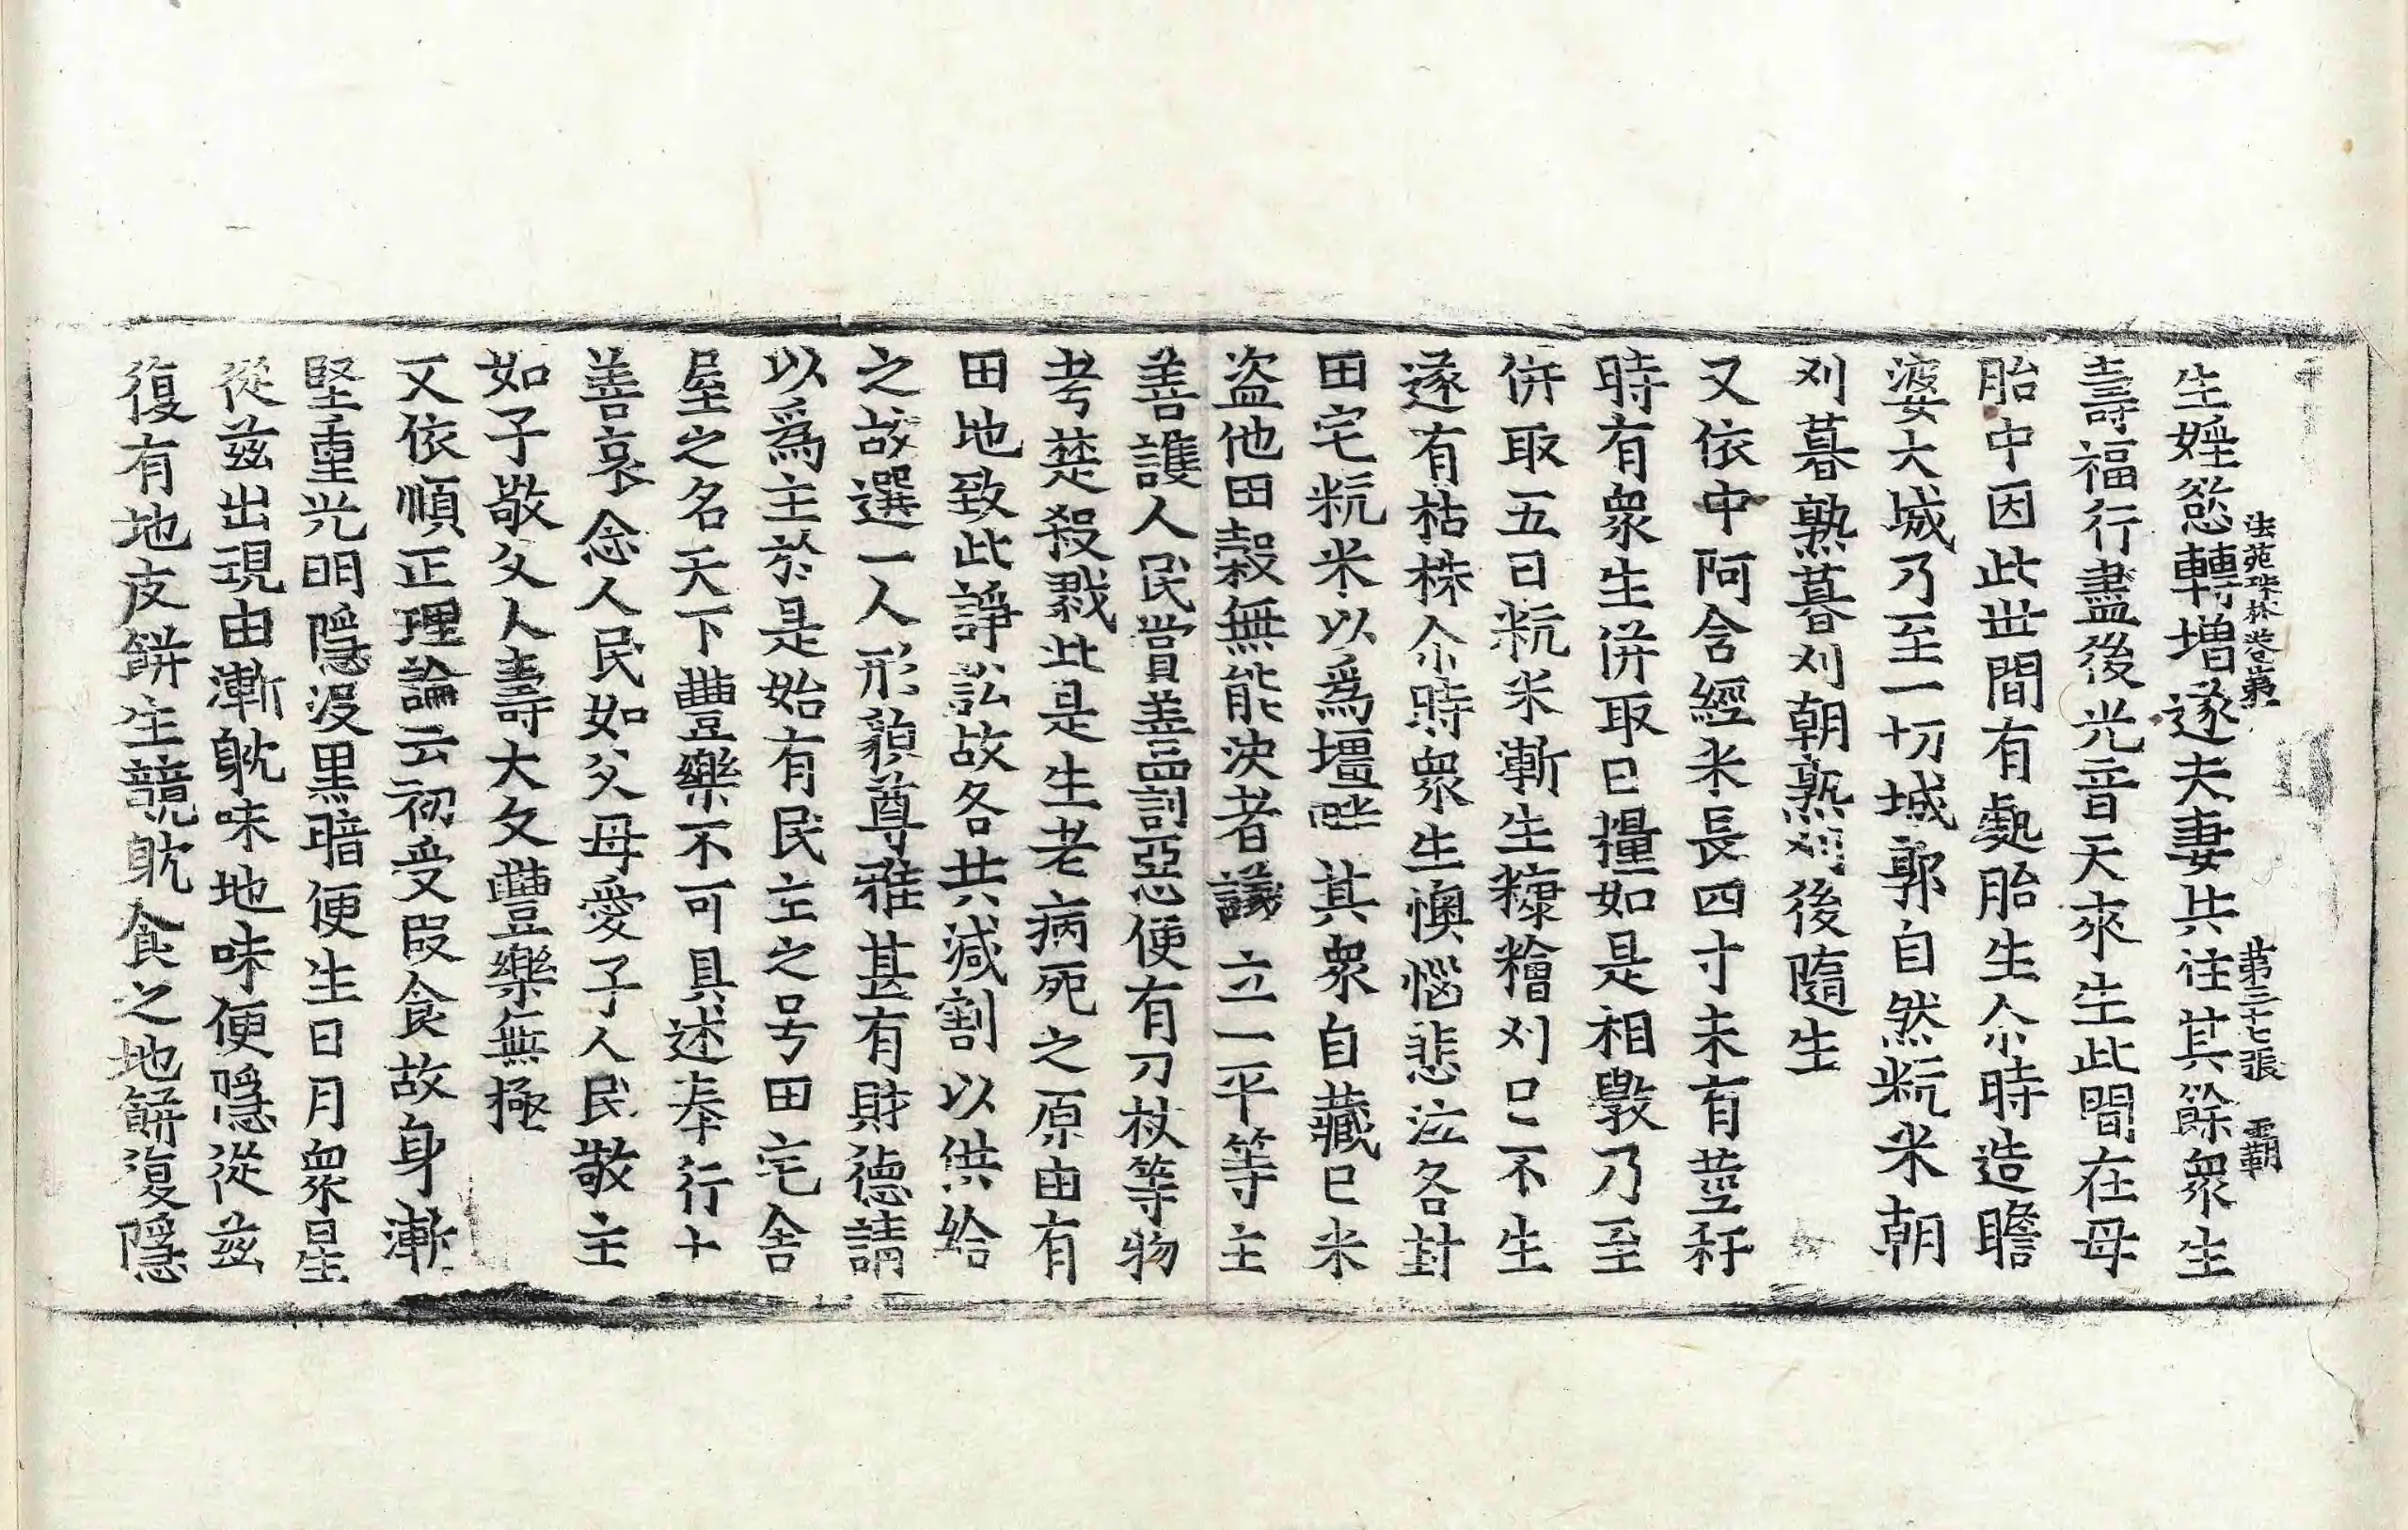 法苑珠林卷苐一 苐三十七張 覇
生婬慾轉增遂夫妻共住其餘衆生
壽福行盡後光音天來生此間在母
胎中因此世間有處胎生尒時造瞻
婆大城乃至一切城郭自然粇米朝
刈暮熟暮刈朝熟刈後隨生
又依中阿含經米長四寸未有莖稃
時有衆生併取五日糧如是相斆乃至
併取五日粇米漸生糠糩刈已不生
遂有枯株尒時衆生懊惱悲泣各封
田宅粇米以爲壃畔其衆自藏已米
盜他田穀無能決者議立一平等主
善護人民賞善罰惡便有刀杖等物
考楚殺戮此是生老病死之原由有
田地致此諍訟故各共減割以供給
之故選一人形貌尊雅甚有財德請
以爲主於是始有民主之号田宅舍
屋之名天下豐樂不可具述奉行十
善哀念人民如父母愛子人民敬主
如子敬父人壽大久豐樂無極
又依順正理論云初受叚食故身漸
堅重光明隱沒黑暗便生日月衆星
從茲出現由漸躭味地味便隱從茲
復有地皮餅生競躭食之地餅復隱